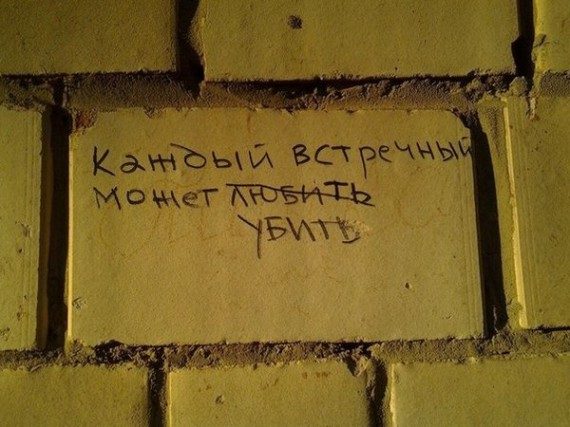 Каждый встречный
может ЛЮБИТЬ
УБИТЬ